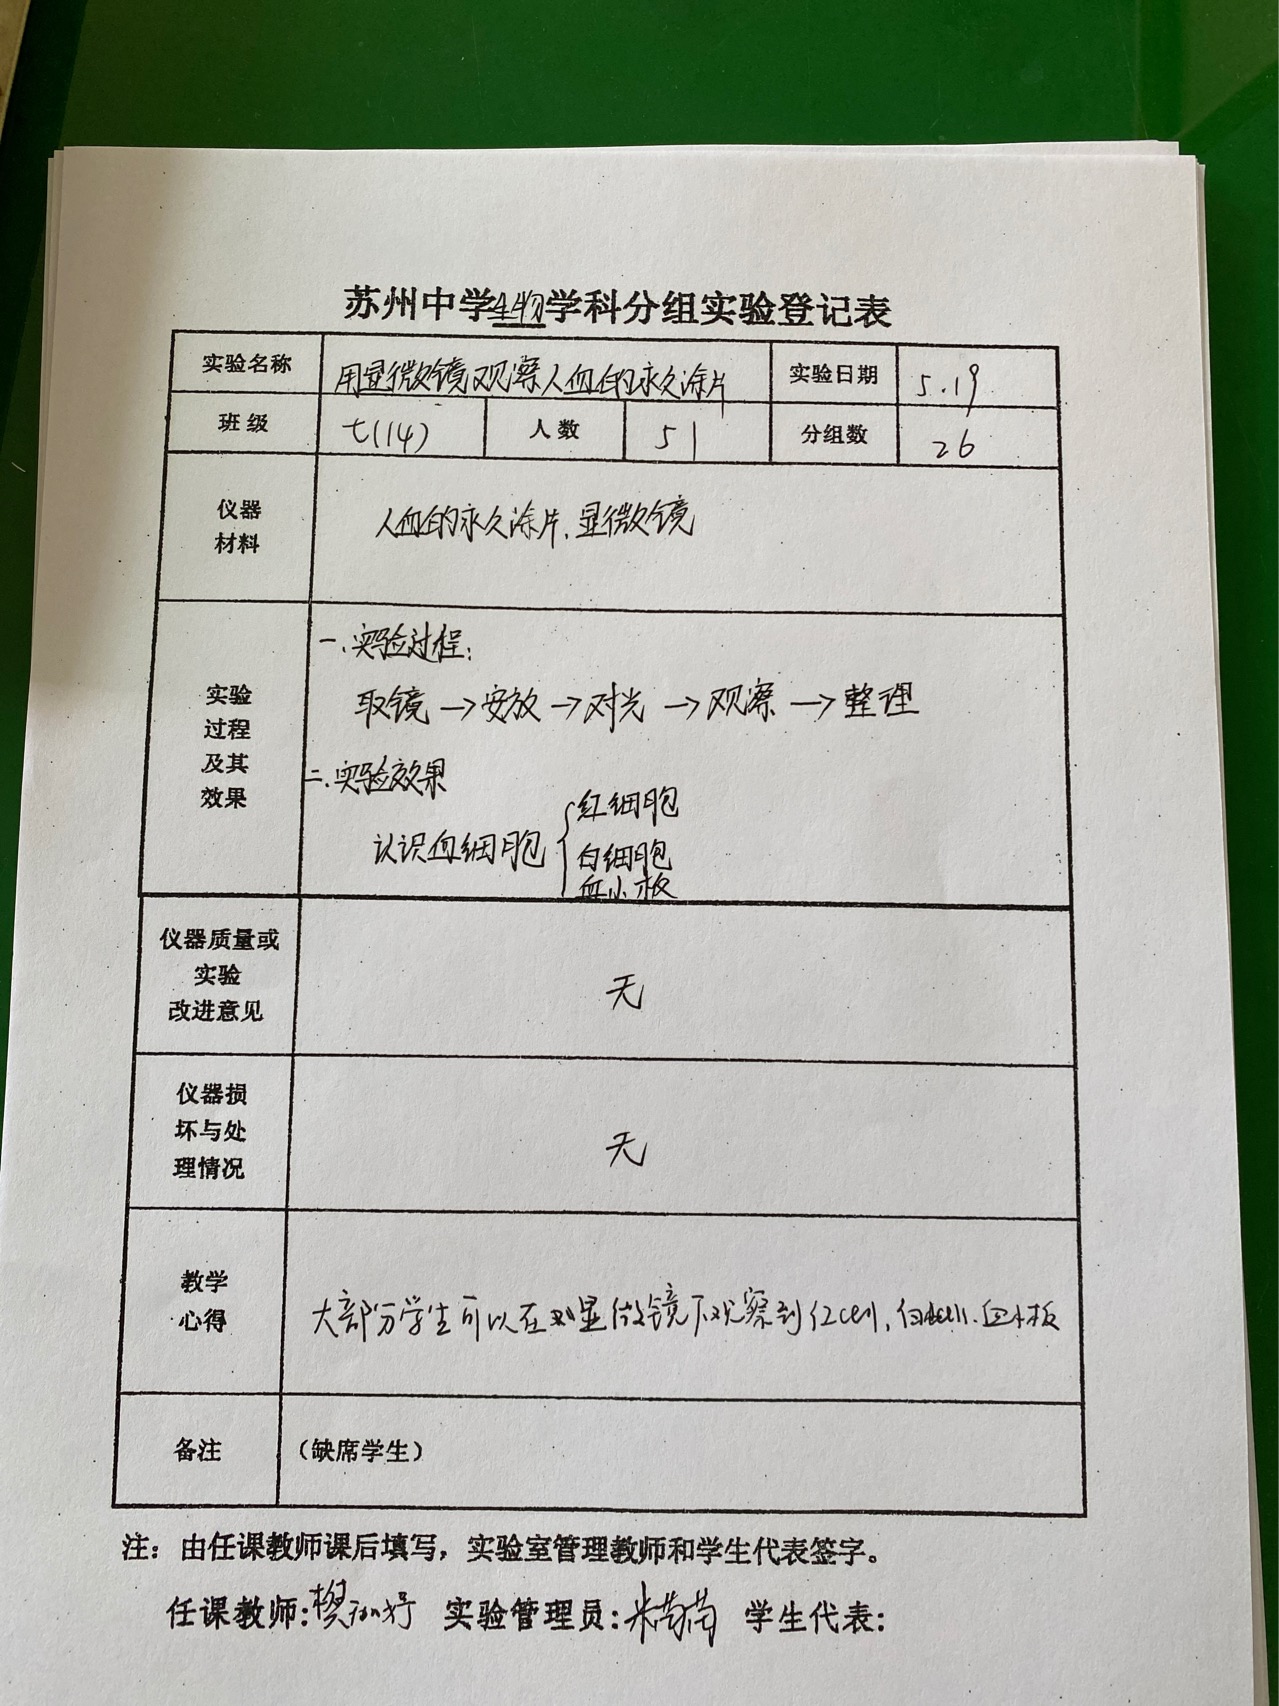 苏州中学生物学科分组实验登记表
实验名称 用显微镜观察人血的永久涂片 实验日期 5.19
班级 七(14) 人数 51 分组数 26
仪器
材料
人血的永久涂片、显微镜
实验
过程
及其
效果
一.实验过程:
取镜→安放→对光→观察→整理
二.实验效果
认识血细胞{红细胞
白细胞
血小板
仪器质量或
实验
改进意见
无
仪器损
坏与处
理情况
无
教学
心得
大部分学生可以在显微镜下观察到红cell,白cell.血小板
备注 (缺席学生)
注:由任课教师课后填写,实验室管理教师和学生代表签字。
任课教师: 实验管理员: 学生代表: